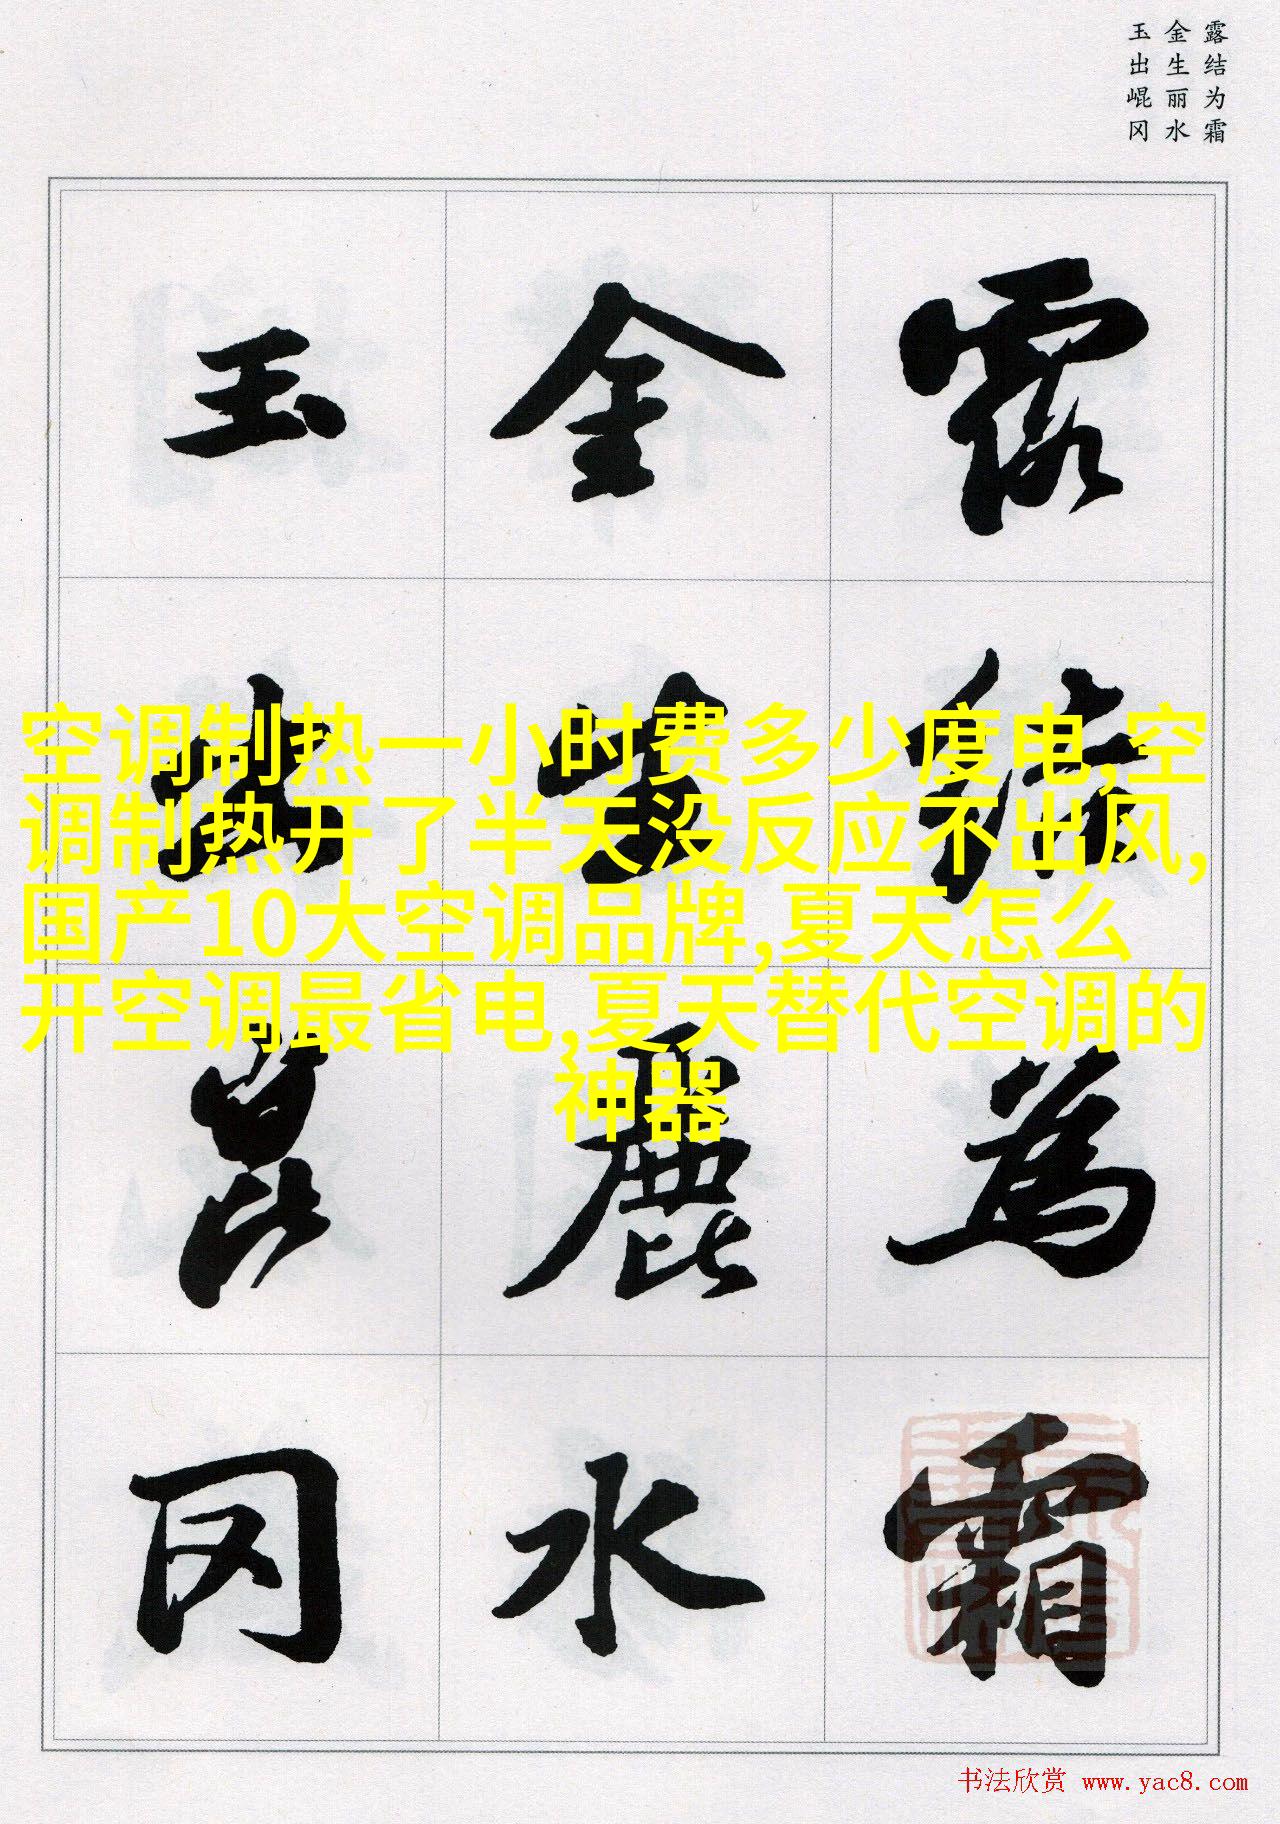 露结为霜
金生丽水
玉出崐冈
露結為霜
金生麗水
玉出崑冈
空调制热一小时费多少度电,空
调制热开了半天没反应不出风,
国产10大空调品牌,夏天怎么
开空调最省电,夏天替代空调的
神器
书法欣赏 www.yac8.com